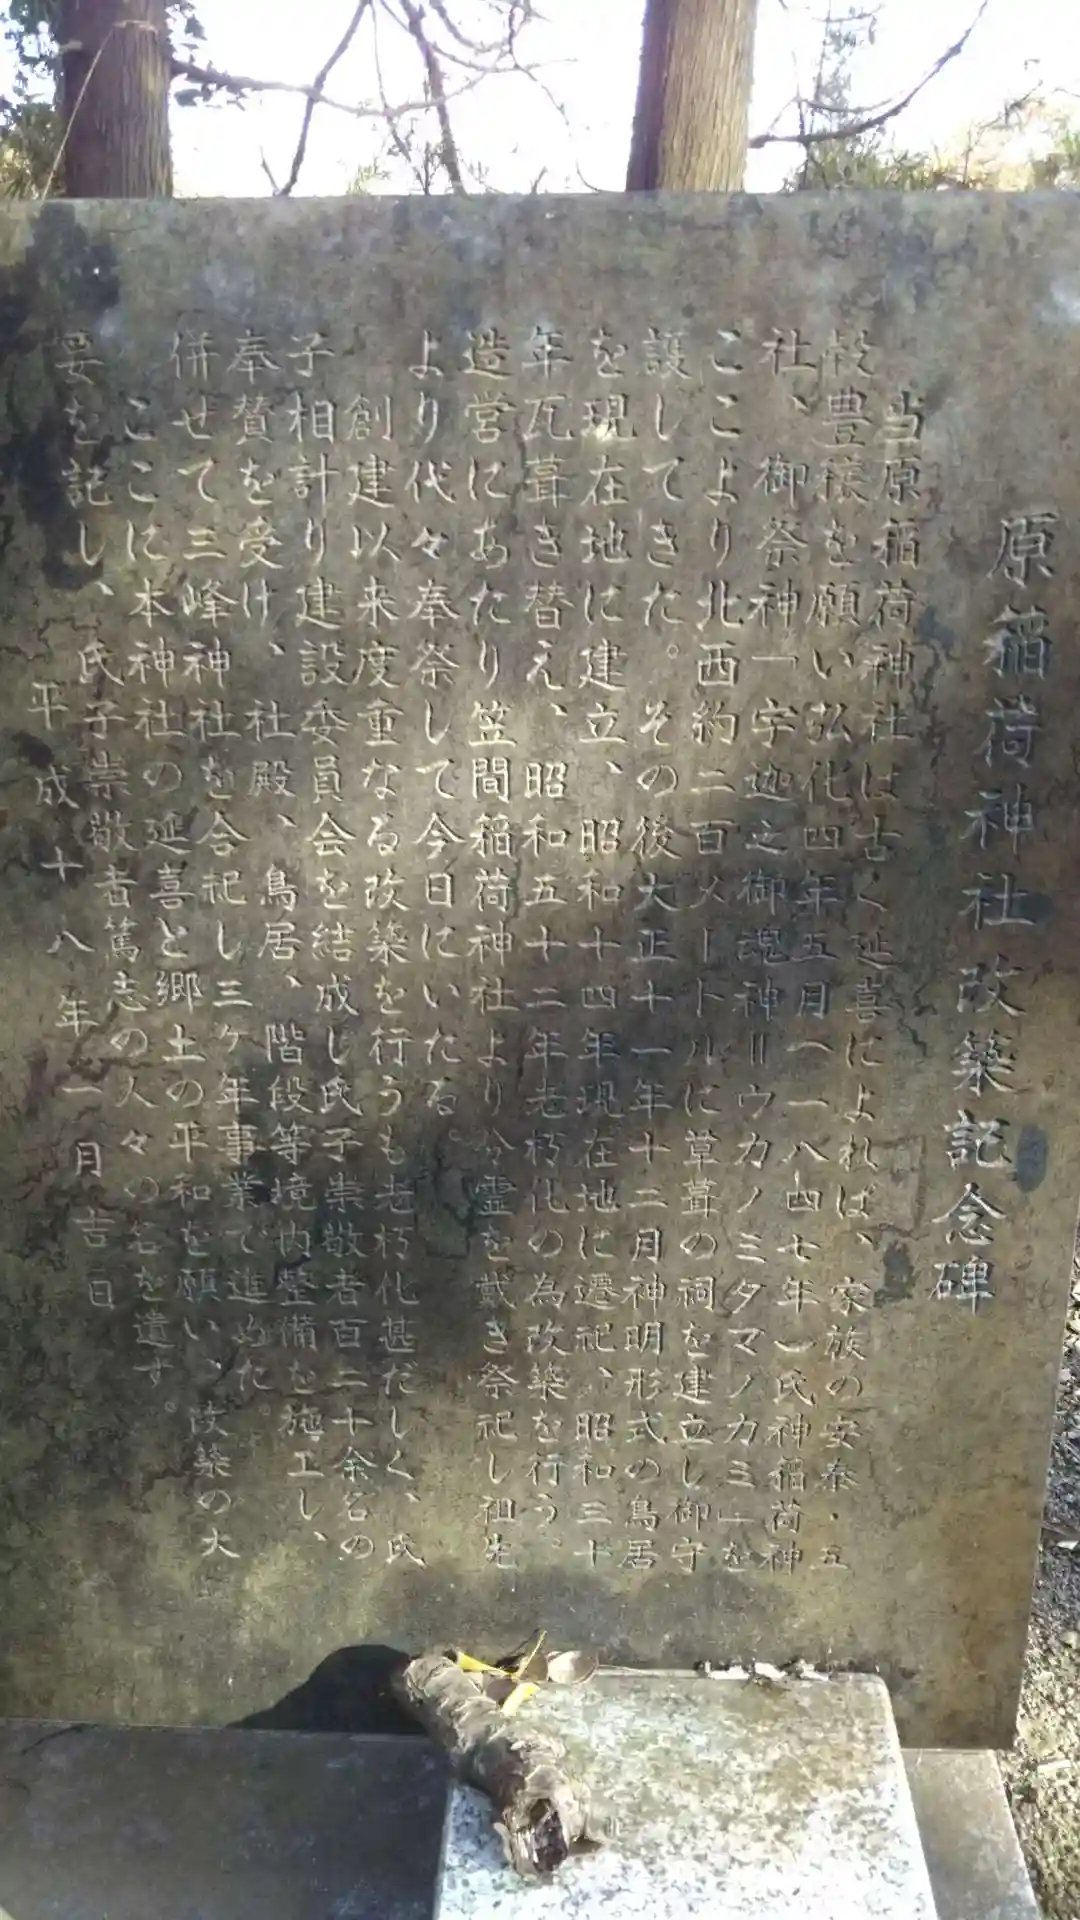 原稲荷神社改築記念碑
当原稲荷神社は古く延喜によれば、家族の安泰・五
穀豊穣を願い弘化四年五月(一八四七年)氏神稲荷神
社、御祭神「宇迦之御魂神=ウカノミタマノカミ」を
ここより北西約二百メートルに草葺の祠を建立し御守
護してきた。その後大正十一年十二月神明形式の鳥居
を現在地に建立、昭和十四年現在地に遷祀、昭和三十
年瓦葺き替え、昭和五十二年老朽化の為改築を行う。
造営にあたり笠間稲荷神社より分霊を戴き祭祀し祖先
より代々奉祭して今日にいたる。
創建以来度重なる改築を行うも老朽化甚だしく、氏
子相計り建設委員会を結成し氏子崇敬者百二十余名の
奉賛を受け、社殿、鳥居、階段等境内整備を施工し、
併せて三峰神社を合祀し三ケ年事業で進めた。
ここに本神社の延喜と郷土の平和を願い、改築の大
要を記し、氏子崇敬者篤志の人々の名を遺す。
平成十八年一月吉日